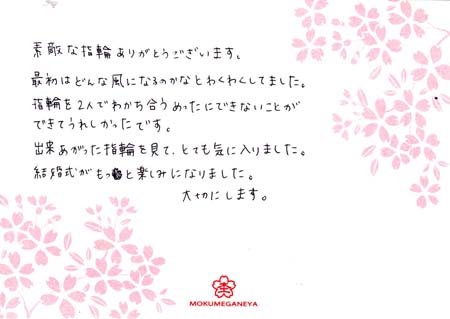 素敵な指輪ありがとうございます。
最初はどんな風になるのかなとわくわくしてました。
指輪を2人でわかち合うめったにできないことが
できてうれしかったです。
出来あがった指輪を見て、とても気に入りました。
結婚式がもっと楽しみになりました。
大切にします。
MOKUMEGANEYA